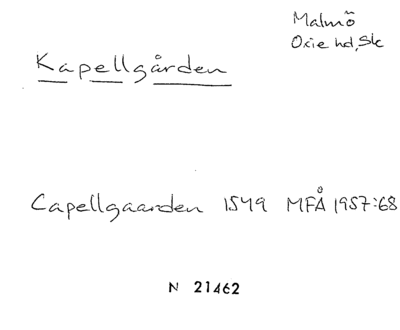 Malmö
Oxie hd, Sk
Kapellgården
Capellgaarden 1549 MFÅ 1957:68
N 21462